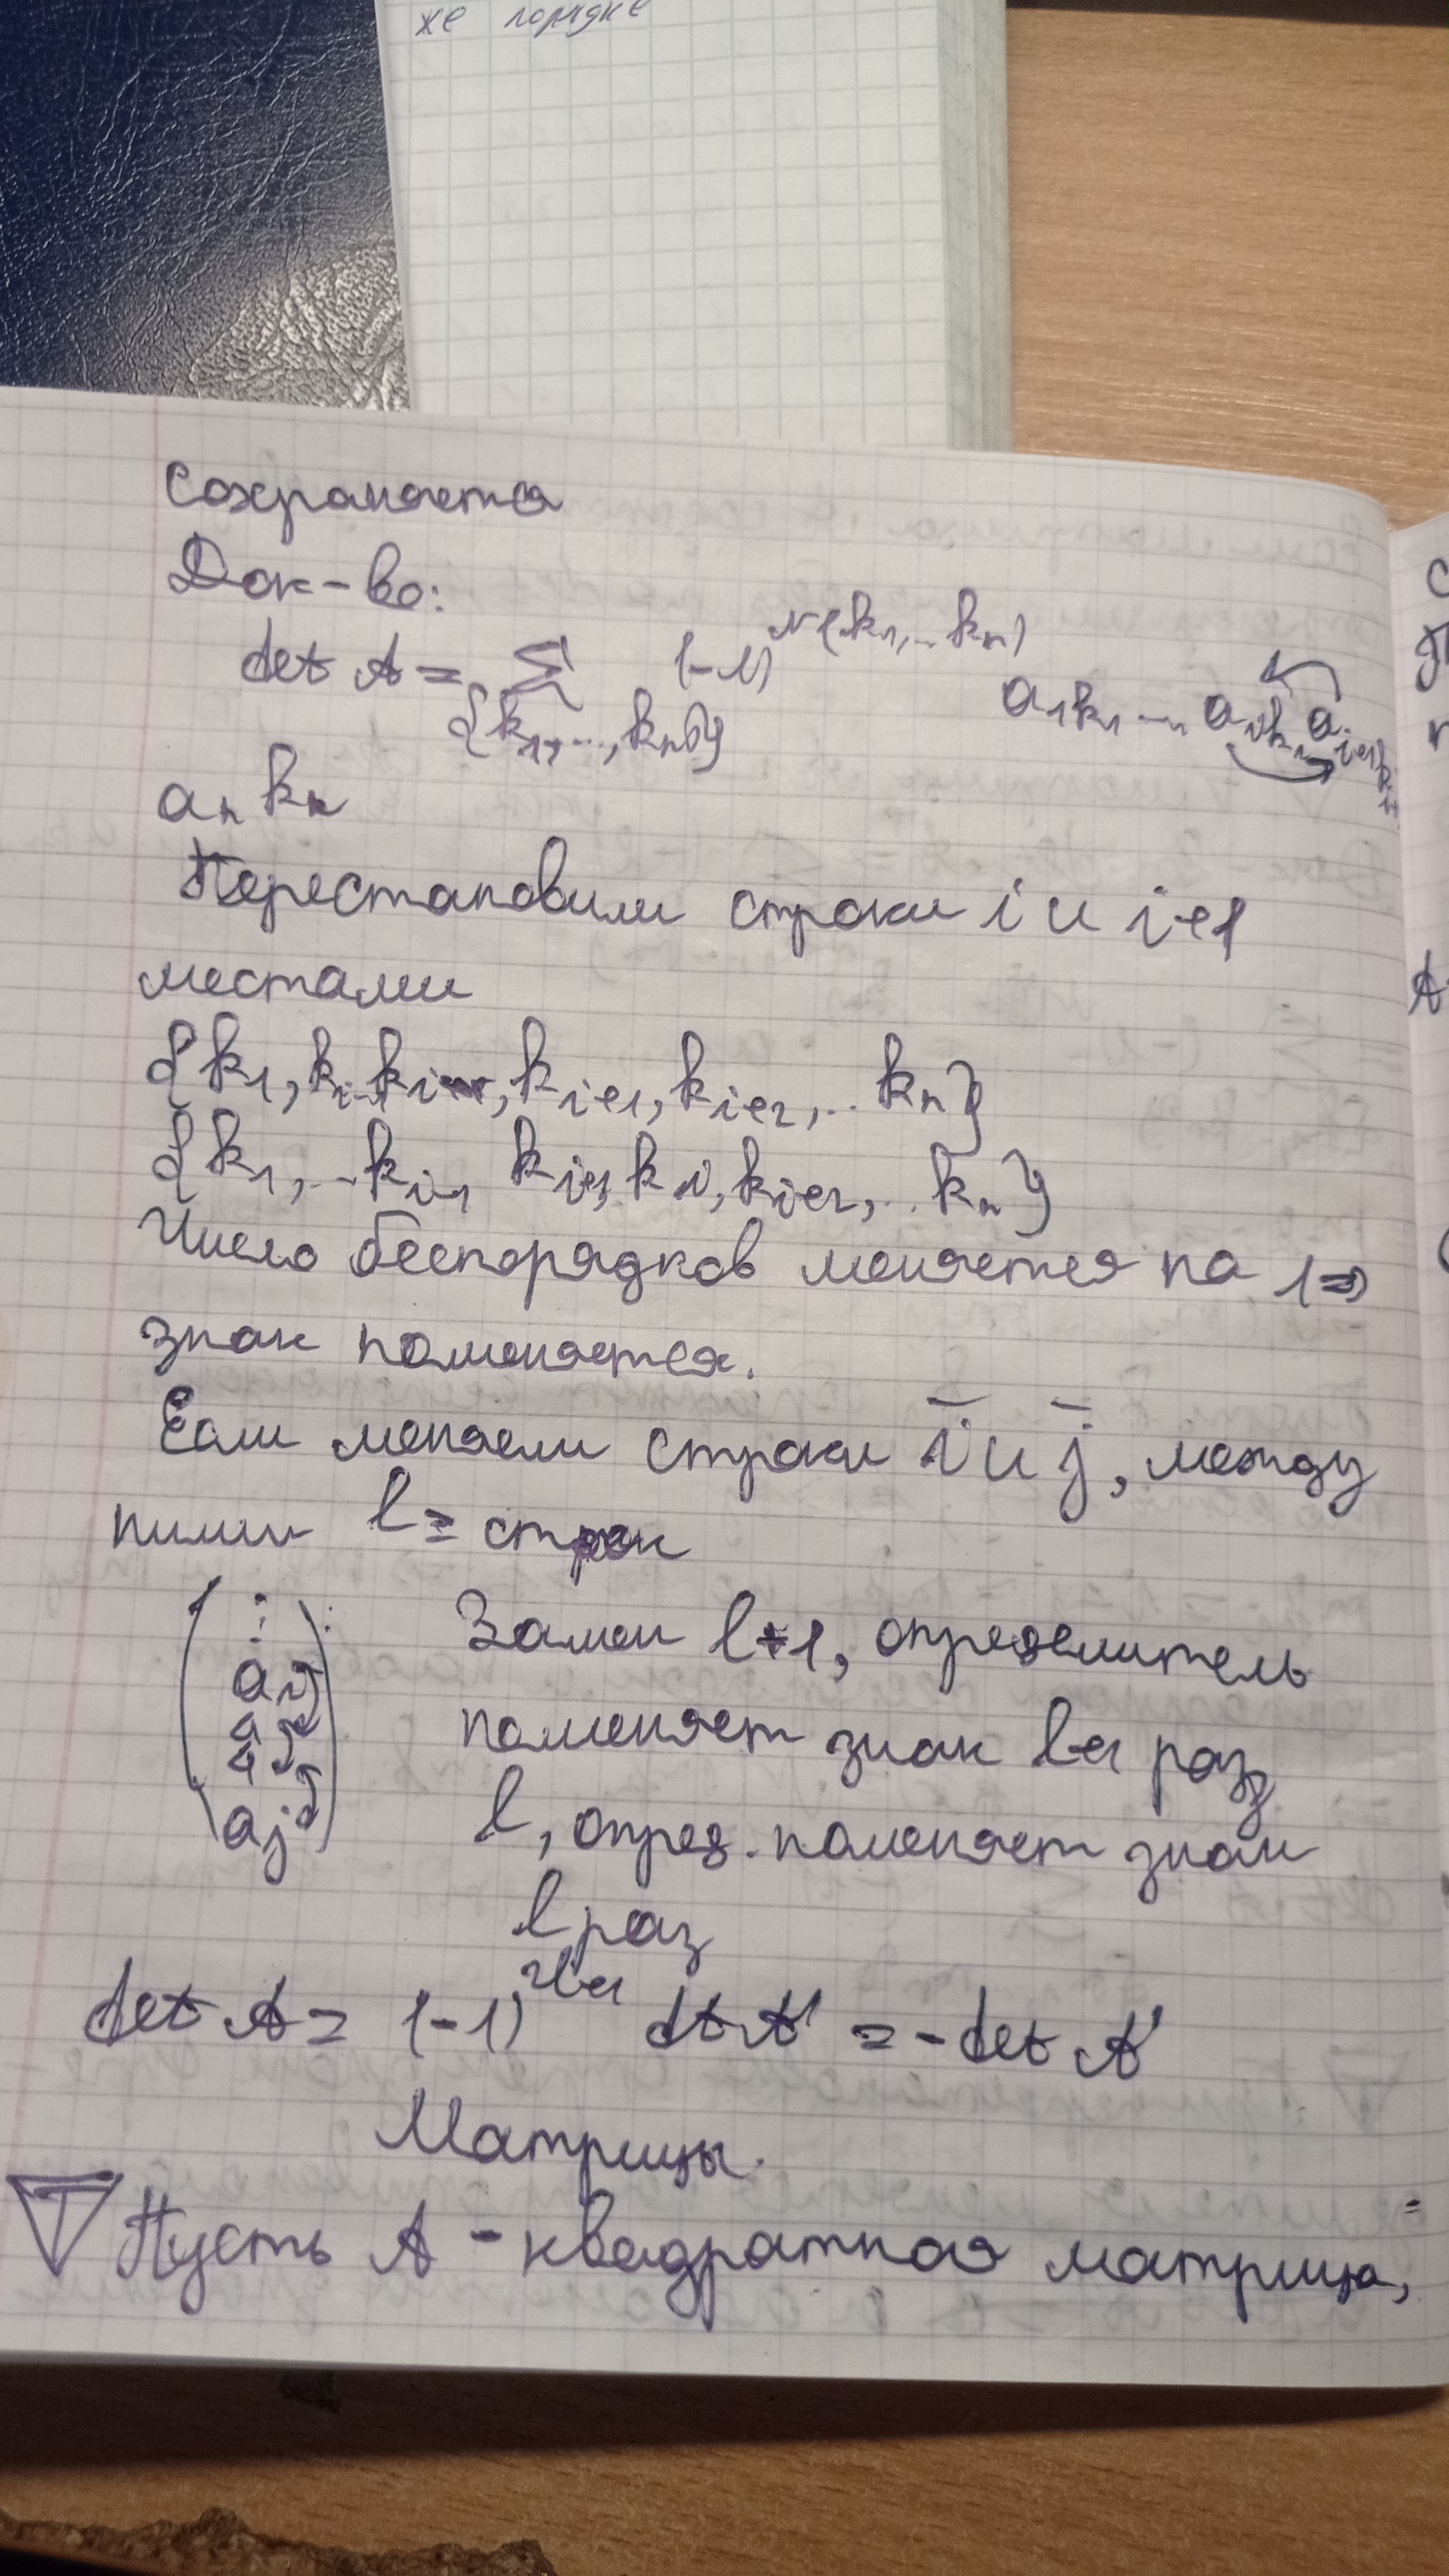 же порядке
сохраняется
Док-во:
det A = Σ (-1)^N(k₁,..kₙ) a₁k₁ ... aᵢkᵢ aᵢ₊₁kᵢ₊₁
{k₁,...,kₙ}
aₙkₙ
Перестановим строки i и i+1
местами
{k₁, kᵢ₋₁kᵢ, kᵢ₊₁, kᵢ₊₂,.. kₙ}
{k₁,..kᵢ₋₁, kᵢ₊₁, kᵢ, kᵢ₊₂,.. kₙ}
Число беспорядков меняется на 1 ⇒
знак поменяется.
Если меняем строки i и j, между
ними l = строк
Замен l+1, определитель
поменяет знак l+1 раз
l, опред. поменяет знак
l раз
det A = (-1)^2l+1 det A' = - det A'
Матрицы.
T Пусть A - квадратная матрица,